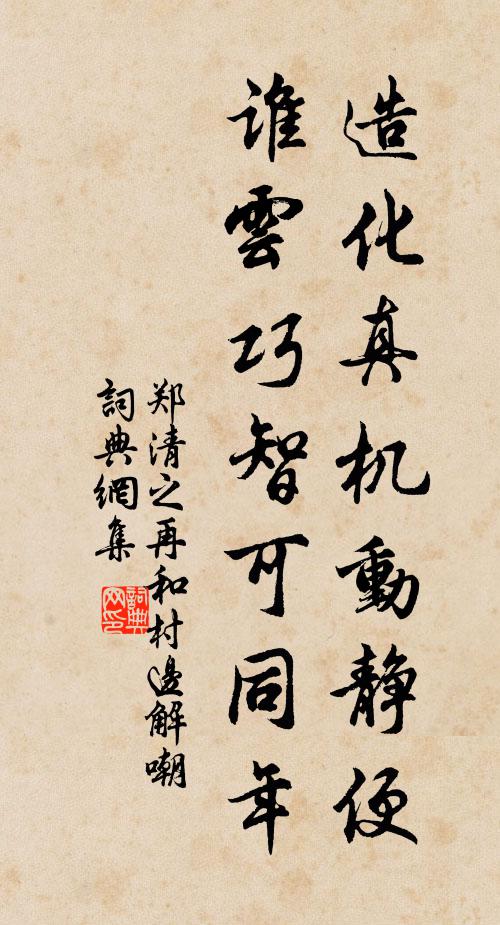 造化真机動静便
谁雲巧智可同年
郑清之再和村邊解嘲
詞典網集
詞典网印